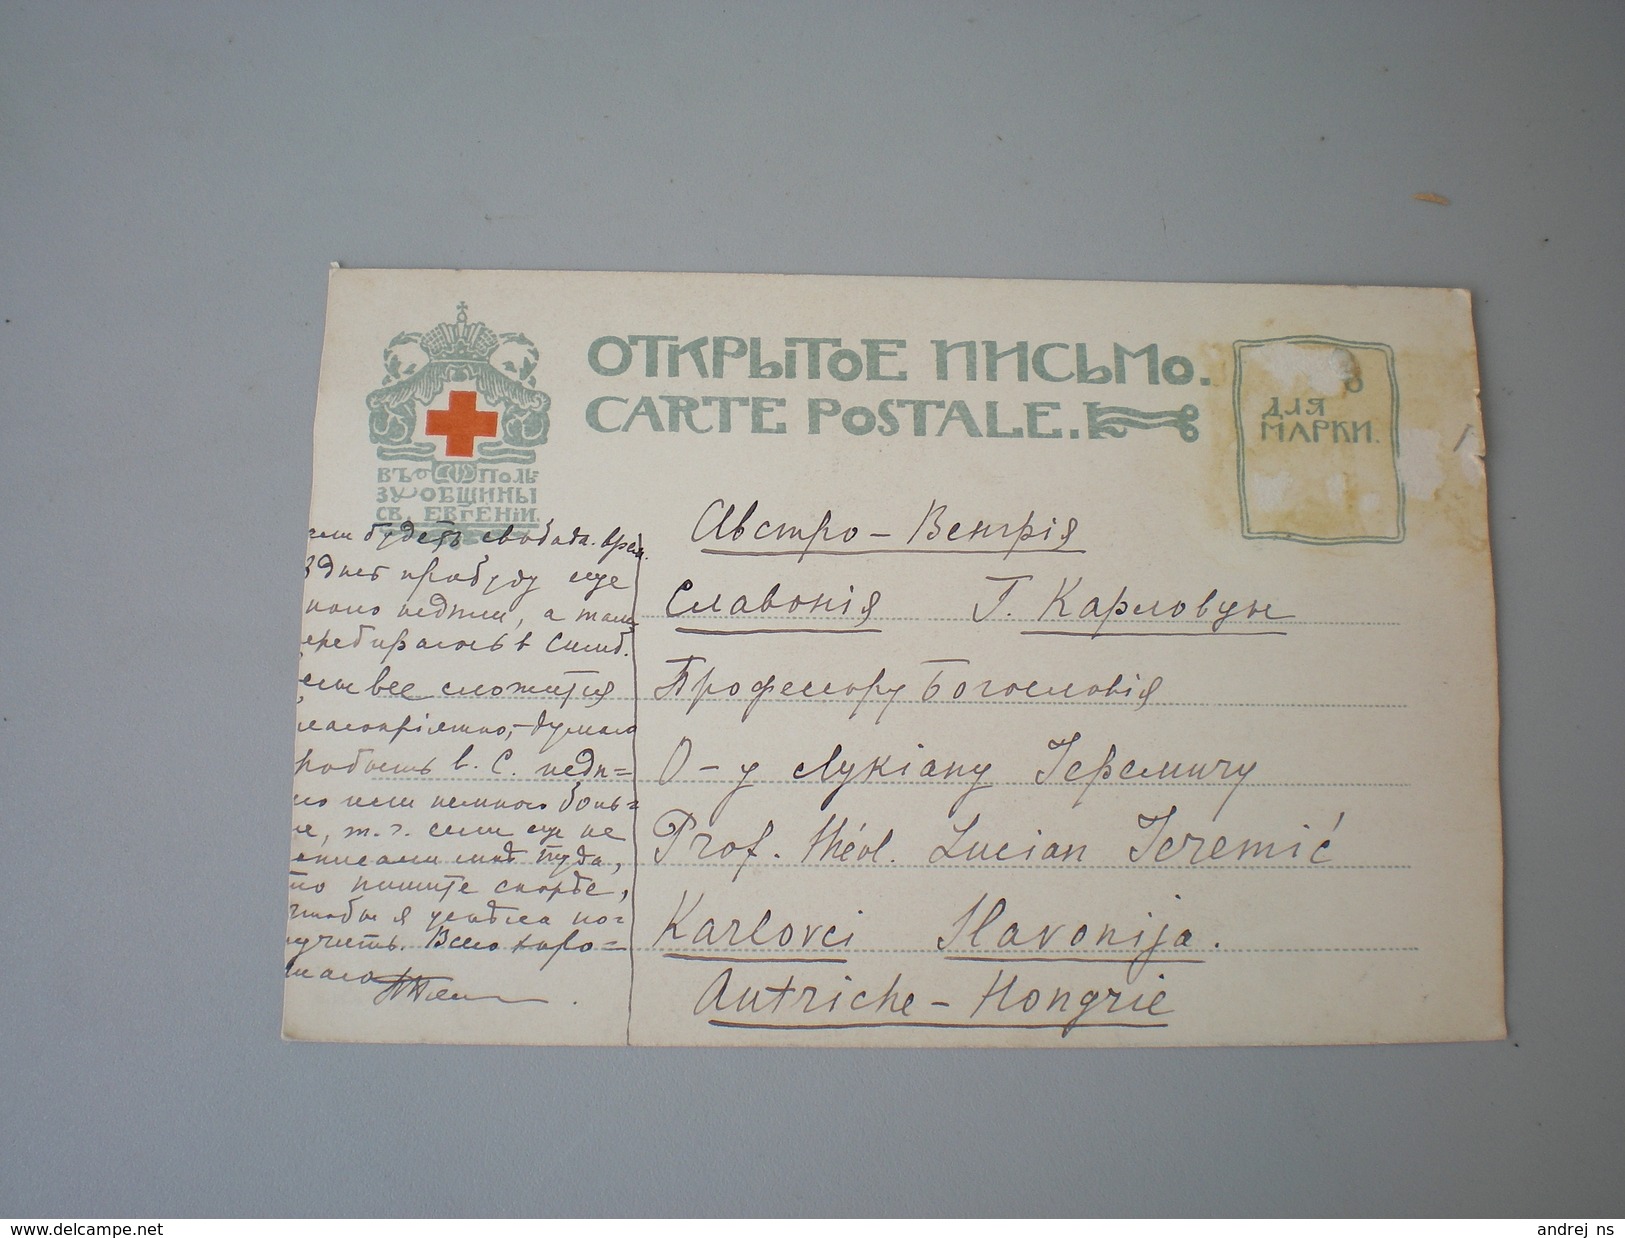 ОТКРЫТОЕ ПИСЬМО.
CARTE POSTALE.
ДЛЯ
МАРКИ.
ВЪ ПОЛЬ-
ЗУ ОБЩИНЫ
СВ. ЕВГЕНІИ.
будетъ свобода. врем.
пробуду еще
недѣли, а тамъ
в Симб.
все сложится
думаю
в. С. недѣ=
или немного боль=
т. ч. если еще не
туда,
пишите скорѣе,
чтобы я успѣлъ по=
лучить. Всего хоро=
шаго
Австро-Венгрія
Славонія Г. Карловцы
Професору Богословія
О-у Лукіану Іеремичу
Prof. théol. Lucian Jeremić
Karlovci Slavonija.
Autriche-Hongrie
delcampe.net
andrej_ns